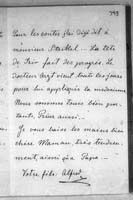 Pour les contes j'ai déjà dit à
monsieur Steckel... La tête
de Trir fait des progrès. Le
docteur Bergt vient tous les jours
pour lui appliquer la médecine
Nous sommes tous bien portants,
Trir aussi...
Je vous baise les mains bien
chère Maman très tendrement,
ainsi qu'à Papa...
Votre fils: Alfred